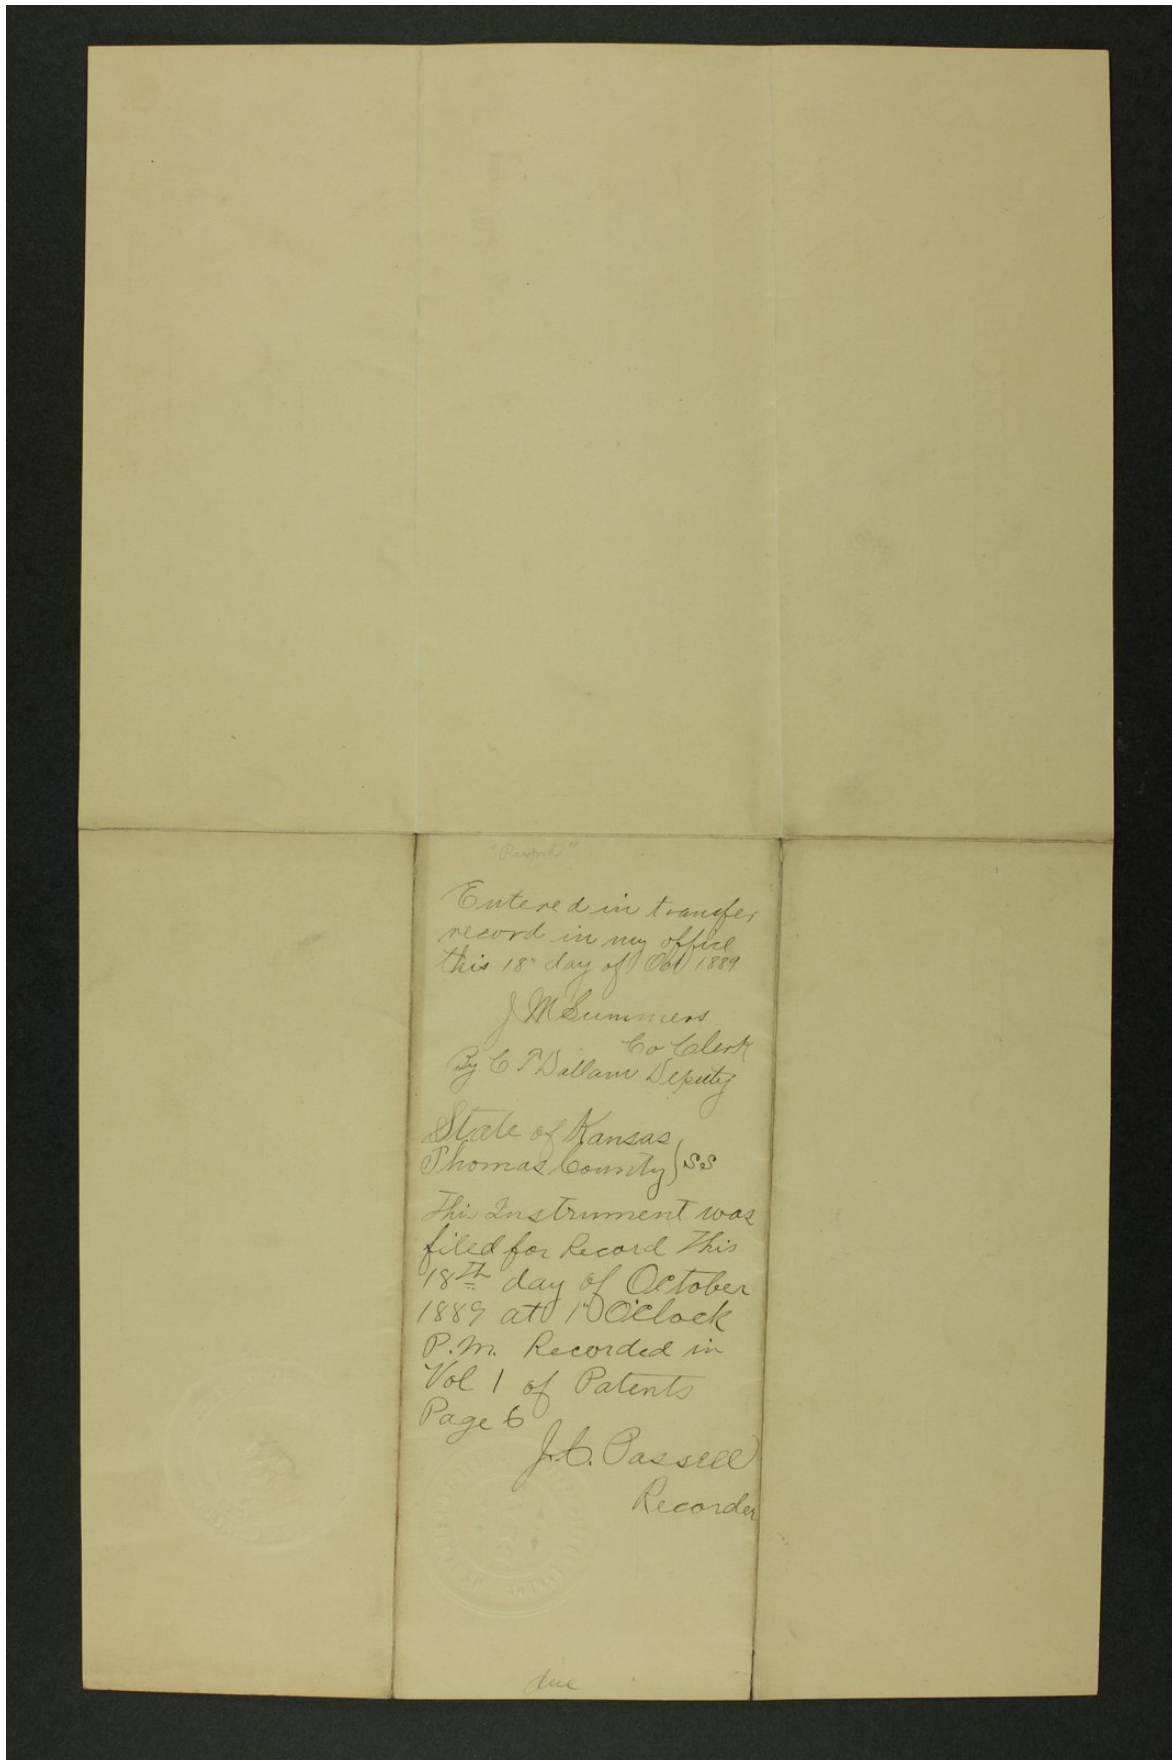 Entered in transfer
record in my office
this 18" day of Oct 1889
J M Summers
Co Clerk
By C P Dallam Deputy
State of Kansas
Thomas County ) SS
This Instrument was
filed for Record This
18th day of October
1889 at 1" O'Clock
P.M. Recorded in
Vol 1 of Patents
Page 6
J.C. Passell
Recorder
due